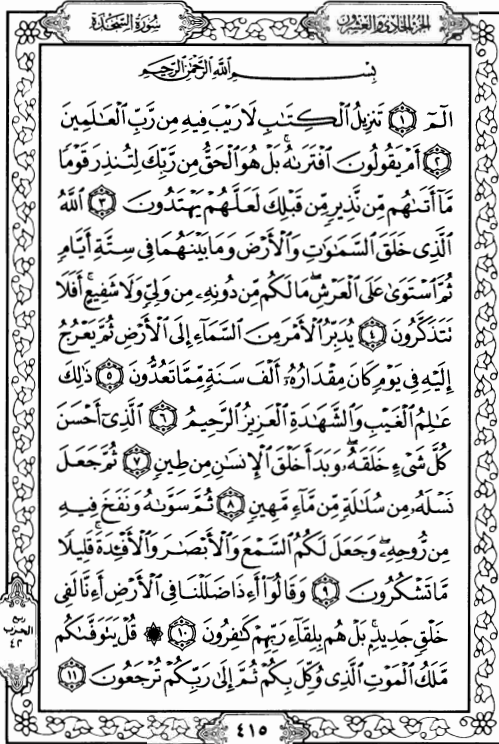 الجزء الحادي والعشرون
سُورَةُ السَّجْدَةِ
بِسْمِ ٱللَّهِ ٱلرَّحْمَٰنِ ٱلرَّحِيمِ
الٓمٓ ١ تَنزِيلُ ٱلْكِتَٰبِ لَا رَيْبَ فِيهِ مِن رَّبِّ ٱلْعَٰلَمِينَ
٢ أَمْ يَقُولُونَ ٱفْتَرَىٰهُ ۚ بَلْ هُوَ ٱلْحَقُّ مِن رَّبِّكَ لِتُنذِرَ قَوْمًا
مَّآ أَتَىٰهُم مِّن نَّذِيرٍ مِّن قَبْلِكَ لَعَلَّهُمْ يَهْتَدُونَ ٣ ٱللَّهُ
ٱلَّذِى خَلَقَ ٱلسَّمَٰوَٰتِ وَٱلْأَرْضَ وَمَا بَيْنَهُمَا فِى سِتَّةِ أَيَّامٍ
ثُمَّ ٱسْتَوَىٰ عَلَى ٱلْعَرْشِ ۖ مَا لَكُم مِّن دُونِهِۦ مِن وَلِىٍّ وَلَا شَفِيعٍ ۚ أَفَلَا
تَتَذَكَّرُونَ ٤ يُدَبِّرُ ٱلْأَمْرَ مِنَ ٱلسَّمَآءِ إِلَى ٱلْأَرْضِ ثُمَّ يَعْرُجُ
إِلَيْهِ فِى يَوْمٍ كَانَ مِقْدَارُهُۥٓ أَلْفَ سَنَةٍ مِّمَّا تَعُدُّونَ ٥ ذَٰلِكَ
عَٰلِمُ ٱلْغَيْبِ وَٱلشَّهَٰدَةِ ٱلْعَزِيزُ ٱلرَّحِيمُ ٦ ٱلَّذِىٓ أَحْسَنَ
كُلَّ شَىْءٍ خَلَقَهُۥ ۖ وَبَدَأَ خَلْقَ ٱلْإِنسَٰنِ مِن طِينٍ ٧ ثُمَّ جَعَلَ
نَسْلَهُۥ مِن سُلَٰلَةٍ مِّن مَّآءٍ مَّهِينٍ ٨ ثُمَّ سَوَّىٰهُ وَنَفَخَ فِيهِ
مِن رُّوحِهِۦ ۖ وَجَعَلَ لَكُمُ ٱلسَّمْعَ وَٱلْأَبْصَٰرَ وَٱلْأَفْـِٔدَةَ ۚ قَلِيلًا
مَّا تَشْكُرُونَ ٩ وَقَالُوٓا۟ أَءِذَا ضَلَلْنَا فِى ٱلْأَرْضِ أَءِنَّا لَفِى
خَلْقٍ جَدِيدٍۭ ۚ بَلْ هُم بِلِقَآءِ رَبِّهِمْ كَٰفِرُونَ ١٠ ۞ قُلْ يَتَوَفَّىٰكُم
مَّلَكُ ٱلْمَوْتِ ٱلَّذِى وُكِّلَ بِكُمْ ثُمَّ إِلَىٰ رَبِّكُمْ تُرْجَعُونَ ١١
ربع
الحزب
٤٢
٤١٥